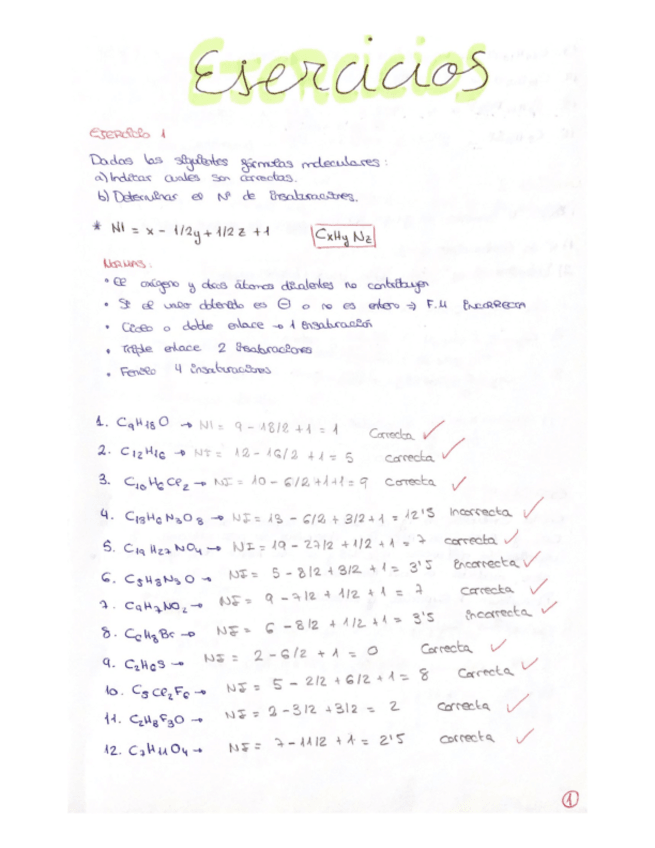 Ejercicios
EJERCICIO 1
Dados las siguientes fórmulas moleculares:
a) Indicar cuales son correctas.
b) Determinar el Nº de insaturaciones.
* NI = x - 1/2y + 1/2 z + 1 CxHy Nz
NORMAS:
• El oxígeno y otros átomos divalentes no contribuyen
• Si el valor obtenido es ⊖ o no es entero → F.M INCORRECTA
• Ciclo o doble enlace → 1 insaturación
• Triple enlace 2 insaturaciones
• Fenilo 4 insaturaciones
1. C9H18O → NI = 9 - 18/2 + 1 = 1 Correcta ✓
2. C12H16 → NI = 12 - 16/2 + 1 = 5 correcta ✓
3. C10H6Cl2 → NI = 10 - 6/2 + 1 + 1 = 9 correcta ✓
4. C13H6N3O8 → NI = 13 - 6/2 + 3/2 + 1 = 12'5 incorrecta ✓
5. C19H27NO4 → NI = 19 - 27/2 + 1/2 + 1 = 7 correcta ✓
6. C5H8N3O → NI = 5 - 8/2 + 3/2 + 1 = 3'5 Incorrecta ✓
7. C9H7NO2 → NI = 9 - 7/2 + 1/2 + 1 = 7 correcta ✓
8. C6H8Br → NI = 6 - 8/2 + 1/2 + 1 = 3'5 incorrecta ✓
9. C2H6S → NI = 2 - 6/2 + 1 = 0 Correcta ✓
10. C5Cl2F6 → NI = 5 - 2/2 + 6/2 + 1 = 8 Correcta ✓
11. C2H3F3O → NI = 2 - 3/2 + 3/2 = 2 correcta ✓
12. C7H11O4 → NI = 7 - 11/2 + 1 = 2'5 correcta ✓
1